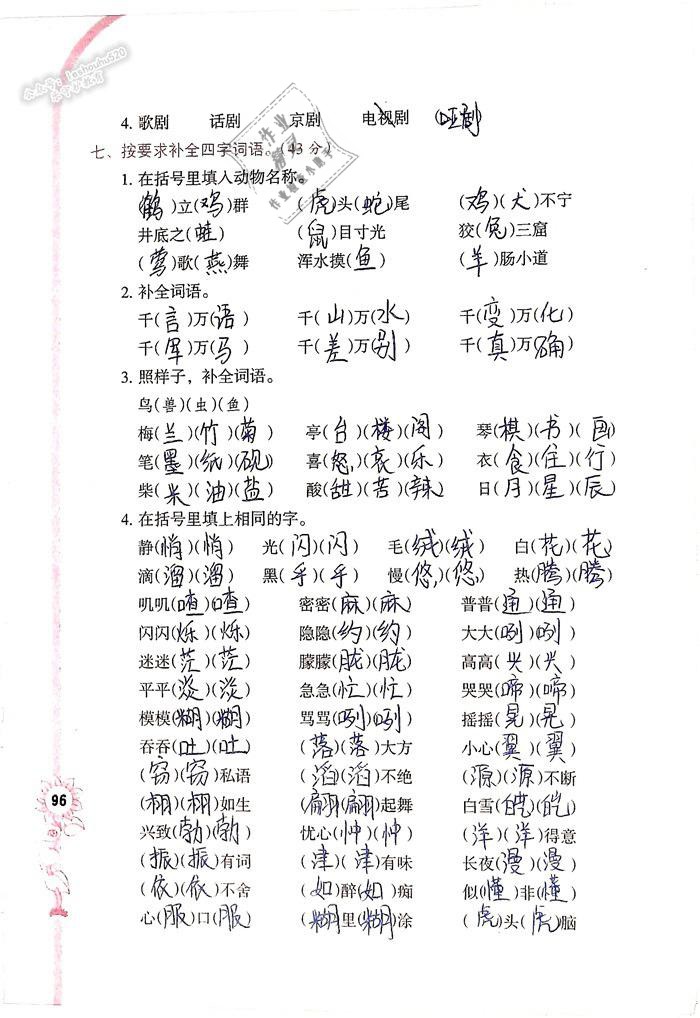 公众号: lashouhu520
4. 歌剧 话剧 京剧 电视剧 (哑剧)
七、按要求补全四字词语。(43分)
1. 在括号里填入动物名称。
(鹤)立(鸡)群 (虎)头(蛇)尾 (鸡)(犬)不宁
井底之(蛙) (鼠)目寸光 狡(兔)三窟
(莺)歌(燕)舞 浑水摸(鱼) (羊)肠小道
2. 补全词语。
千(言)万(语) 千(山)万(水) 千(变)万(化)
千(军)万(马) 千(差)万(别) 千(真)万(确)
3. 照样子，补全词语。
鸟(兽)(虫)(鱼)
梅(兰)(竹)(菊) 亭(台)(楼)(阁) 琴(棋)(书)(画)
笔(墨)(纸)(砚) 喜(怒)(哀)(乐) 衣(食)(住)(行)
柴(米)(油)(盐) 酸(甜)(苦)(辣) 日(月)(星)(辰)
4. 在括号里填上相同的字。
静(悄)(悄) 光(闪)(闪) 毛(绒)(绒) 白(花)(花)
滴(溜)(溜) 黑(乎)(乎) 慢(悠)(悠) 热(腾)(腾)
叽叽(喳)(喳) 密密(麻)(麻) 普普(通)(通)
闪闪(烁)(烁) 隐隐(约)(约) 大大(咧)(咧)
迷迷(茫)(茫) 朦朦(胧)(胧) 高高(兴)(兴)
平平(淡)(淡) 急急(忙)(忙) 哭哭(啼)(啼)
模模(糊)(糊) 骂骂(咧)(咧) 摇摇(晃)(晃)
吞吞(吐)(吐) (落)(落)大方 小心(翼)(翼)
(窃)(窃)私语 (滔)(滔)不绝 (源)(源)不断
(栩)(栩)如生 (翩)(翩)起舞 白雪(皑)(皑)
兴致(勃)(勃) 忧心(忡)(忡) (洋)(洋)得意
(振)(振)有词 (津)(津)有味 长夜(漫)(漫)
(依)(依)不舍 (如)醉(如)痴 似(懂)非(懂)
心(服)口(服) (糊)里(糊)涂 (虎)头(虎)脑
96